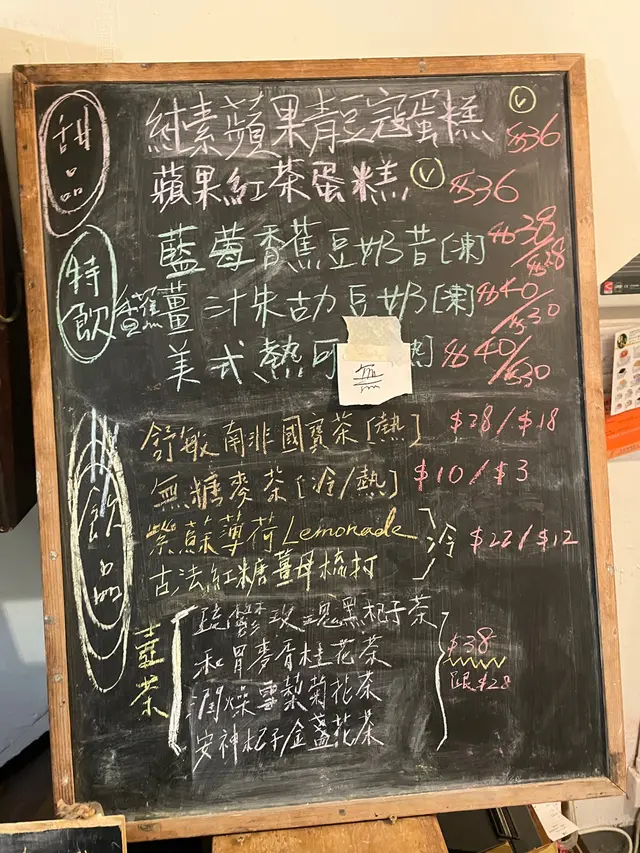 甜品
純素蘋果青豆寇蛋糕 V $36
蘋果紅茶蛋糕 V $36
特飲
藍莓香蕉豆奶昔[凍] $38/$28
薑汁朱古力豆奶[凍] $40/$30
美式熱 $40/$30
無
飲品
舒敏南非國寶茶[熱] $28/$18
無糖麥茶[冷/熱] $10/$3
紫蘇薄荷Lemonade
古法紅糖薑母梳打
冷 $22/$12
壼茶
疏鬱玫瑰黑杞子茶
和胃麥香桂花茶
潤燥雪梨菊花茶
安神杞子金盞花茶
$38
跟$28